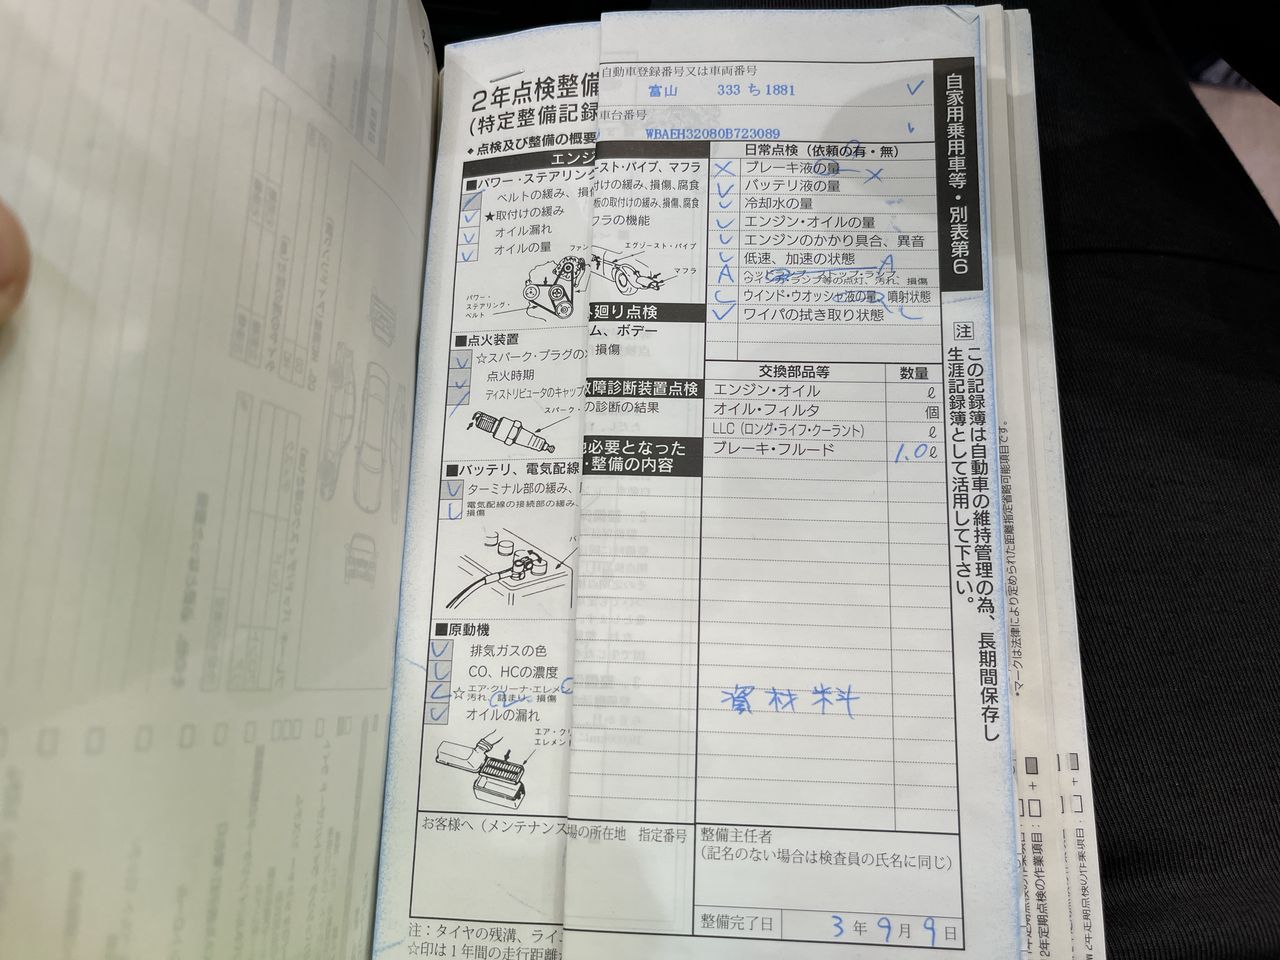 2年点検整備
(特定整備記録
◆点検及び整備の概要
エンジ
■パワー・ステアリング
ベルトの緩み、損傷
★取付けの緩み
オイル漏れ
オイルの量
ファン
パワー・
ステアリング・
ベルト
■点火装置
☆スパーク・プラグの
点火時期
ディストリビュータのキャップ
スパーク・
■バッテリ、電気配線
ターミナル部の緩み、
電気配線の接続部の緩み、
損傷
■原動機
排気ガスの色
CO、HCの濃度
☆エア・クリーナ・エレメ
汚れ、詰まり、損傷
オイルの漏れ
エア・ク
エレメン
お客様へ(メンテナンス
注:タイヤの残溝、ライ
☆印は1年間の走行距離
自動車登録番号又は車両番号
富山 333 ち 1881
車台番号
WBAEH32080B723089
スト・パイプ、マフラ
付けの緩み、損傷、腐食
板の取付けの緩み、損傷、腐食
フラの機能
エグゾースト・パイプ
マフラ
廻り点検
ム、ボデー
損傷
故障診断装置点検
の診断の結果
必要となった
・整備の内容
場の所在地 指定番号
日常点検(依頼の有・無)
ブレーキ液の量
バッテリ液の量
冷却水の量
エンジン・オイルの量
エンジンのかかり具合、異音
低速、加速の状態
ヘッドランプ、ストップ・ランプ、
ウインカ・ランプ等の点灯、汚れ、損傷
ウインド・ウオッシャ液の量、噴射状態
ワイパの拭き取り状態
交換部品等 数量
エンジン・オイル ℓ
オイル・フィルタ 個
LLC(ロング・ライフ・クーラント) ℓ
ブレーキ・フルード 1.0ℓ
資材料
整備主任者
(記名のない場合は検査員の氏名に同じ)
整備完了日 3年9月9日
自家用乗用車等・別表第6
注 この記録簿は自動車の維持管理の為、長期間保存し
生涯記録簿として活用して下さい。
*マークは法律により定められた距離指定省略可能項目です。
2年定期点検の作業項目: